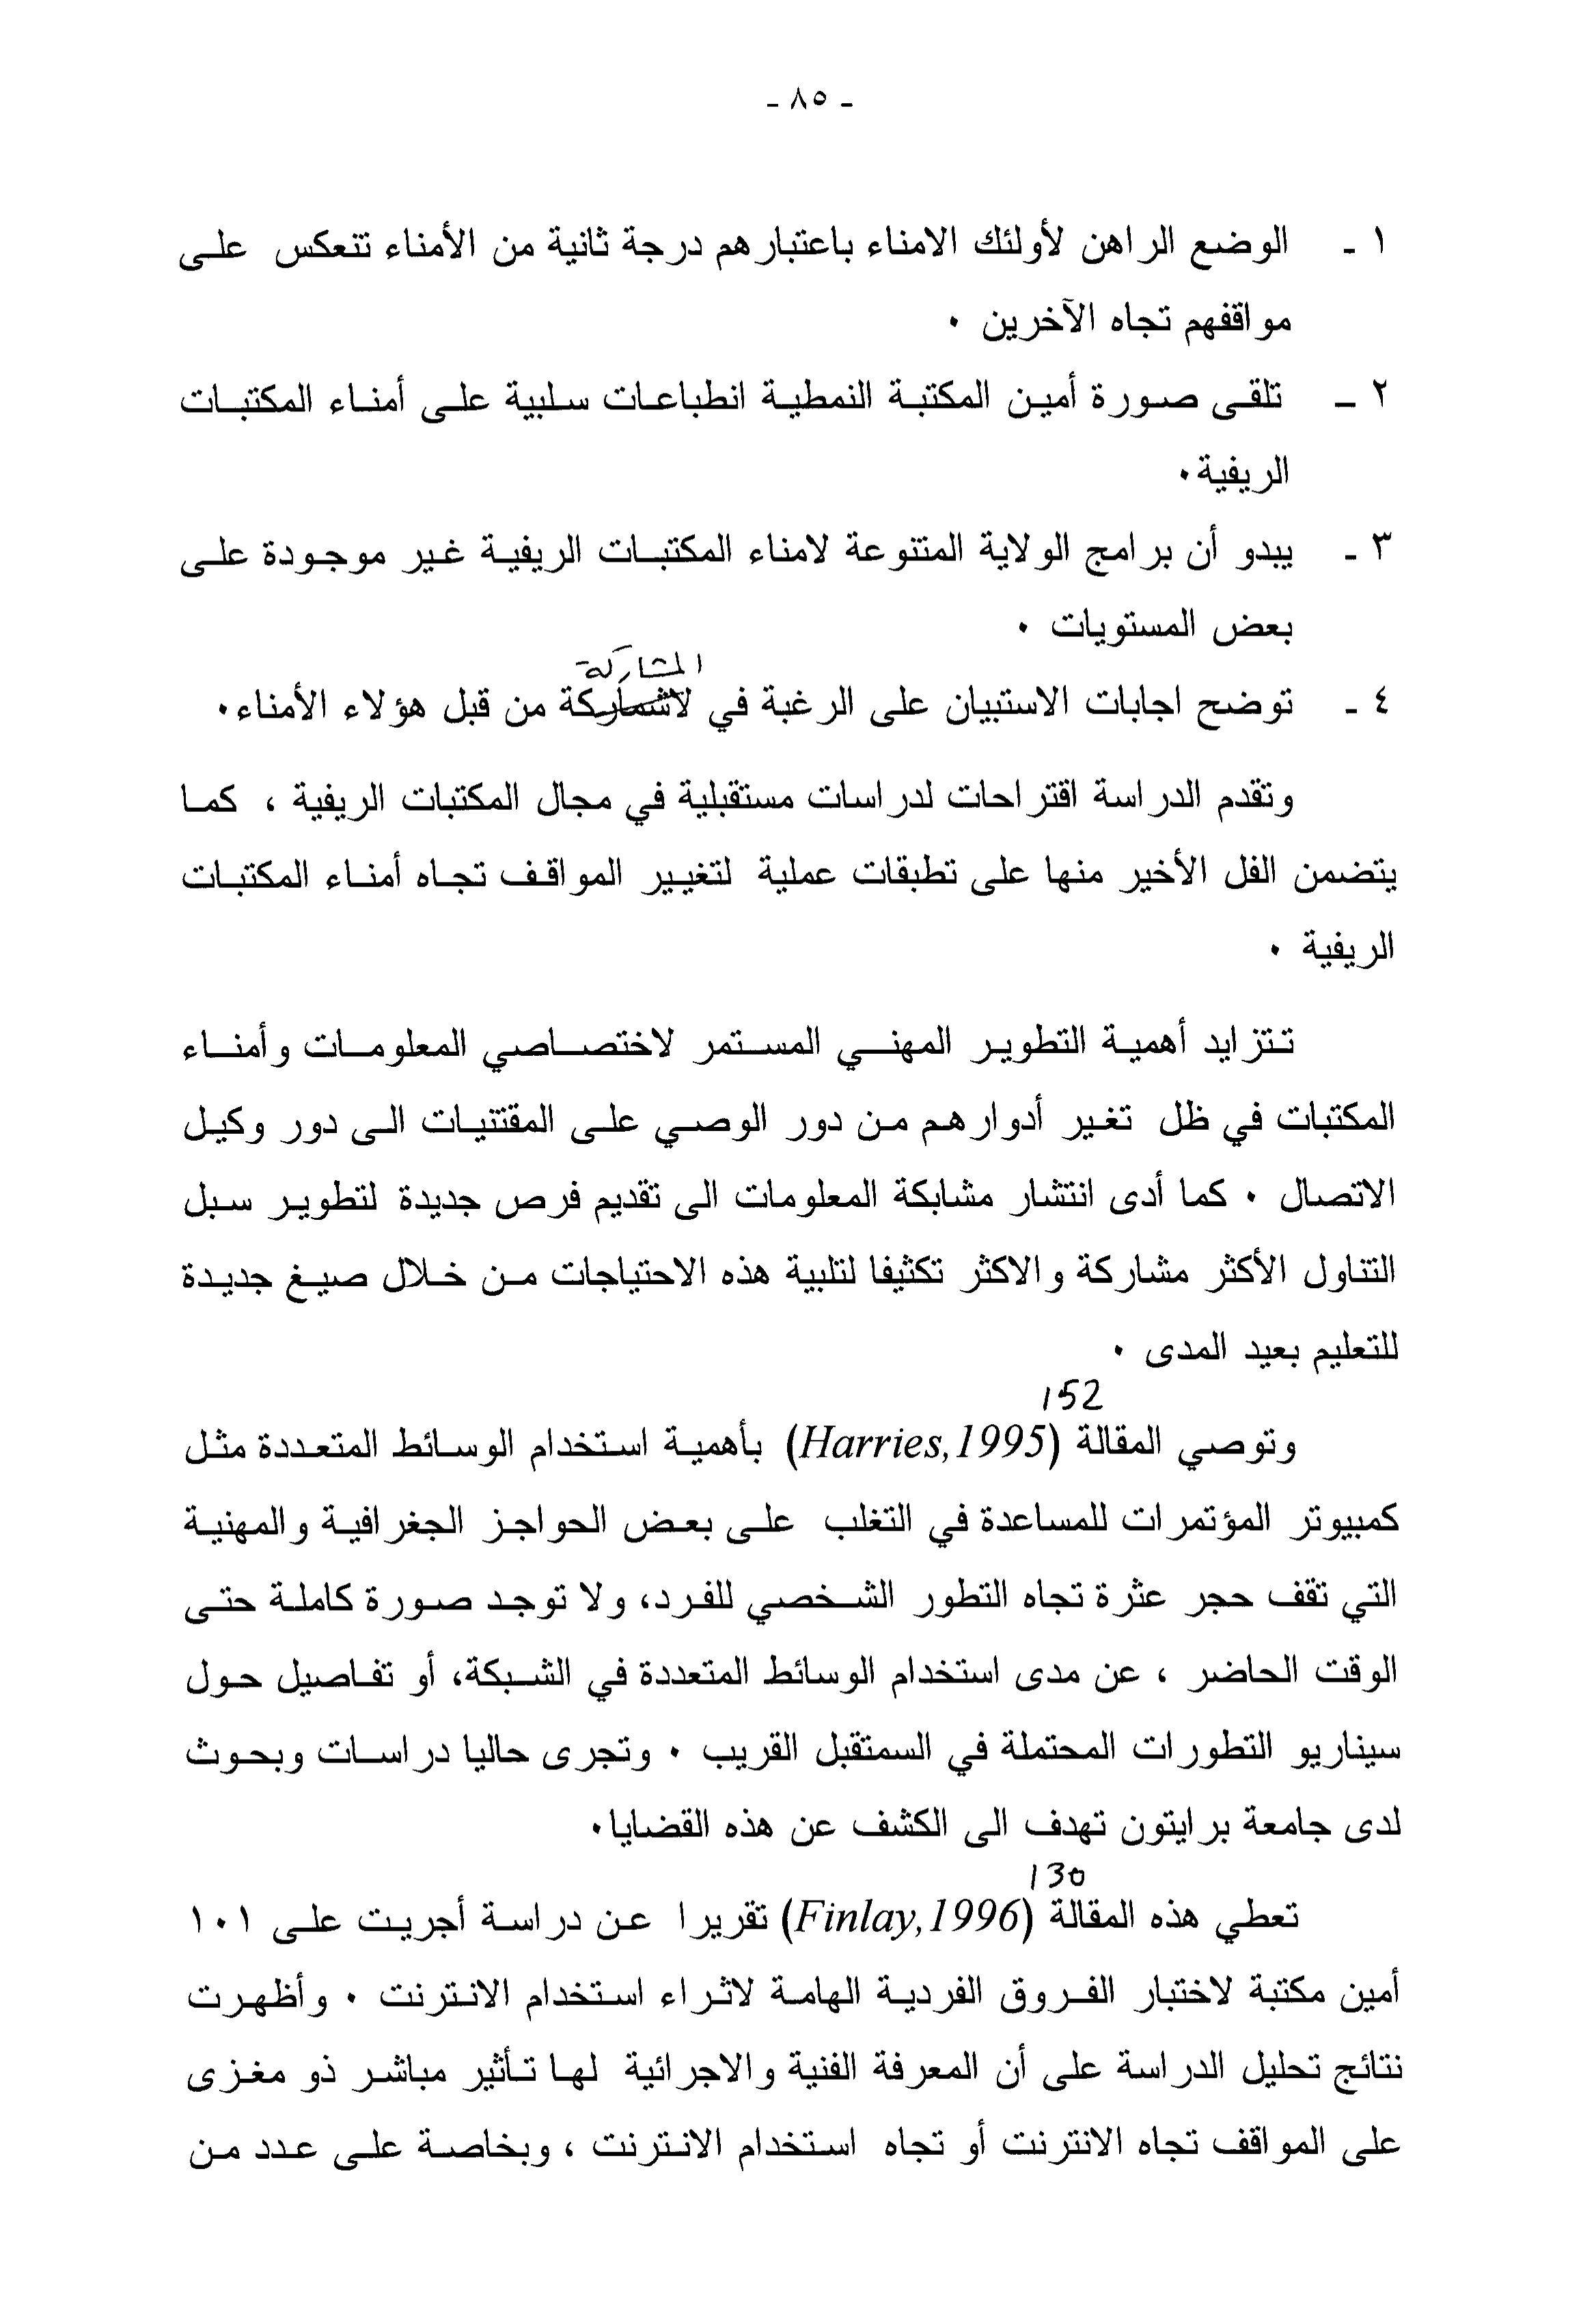 - ٨٥ -
١ - الوضع الراهن لأولئك الامناء باعتبارهم درجة ثانية من الأمناء تنعكس على
مواقفهم تجاه الآخرين ٠
٢ - تلقى صورة أمين المكتبة النمطية انطباعات سلبية على أمناء المكتبات
الريفية٠
٣ - يبدو أن برامج الولاية المتنوعة لامناء المكتبات الريفية غير موجودة على
بعض المستويات ٠
المشاركة
٤ - توضح اجابات الاستبيان على الرغبة في لاشماركة من قبل هؤلاء الأمناء٠
وتقدم الدراسة اقتراحات لدراسات مستقبلية في مجال المكتبات الريفية ، كما
يتضمن الفل الأخير منها على تطبقات عملية لتغيير المواقف تجاه أمناء المكتبات
الريفية ٠
تتزايد أهمية التطوير المهني المستمر لاختصاصي المعلومات وأمناء
المكتبات في ظل تغير أدوارهم من دور الوصي على المقتنيات الى دور وكيل
الاتصال ٠ كما أدى انتشار مشابكة المعلومات الى تقديم فرص جديدة لتطوير سبل
التناول الأكثر مشاركة والاكثر تكثيفا لتلبية هذه الاحتياجات من خلال صيغ جديدة
للتعليم بعيد المدى ٠
152
وتوصي المقالة (Harries,1995) بأهمية استخدام الوسائط المتعددة مثل
كمبيوتر المؤتمرات للمساعدة في التغلب على بعض الحواجز الجغرافية والمهنية
التي تقف حجر عثرة تجاه التطور الشخصي للفرد، ولا توجد صورة كاملة حتى
الوقت الحاضر ، عن مدى استخدام الوسائط المتعددة في الشبكة، أو تفاصيل حول
سيناريو التطورات المحتملة في السمتقبل القريب ٠ وتجرى حاليا دراسات وبحوث
لدى جامعة برايتون تهدف الى الكشف عن هذه القضايا٠
130
تعطي هذه المقالة (Finlay,1996) تقريرا عن دراسة أجريت على ١٠١
أمين مكتبة لاختبار الفروق الفردية الهامة لاثراء استخدام الانترنت ٠ وأظهرت
نتائج تحليل الدراسة على أن المعرفة الفنية والاجرائية لها تأثير مباشر ذو مغزى
على المواقف تجاه الانترنت أو تجاه استخدام الانترنت ، وبخاصة على عدد من